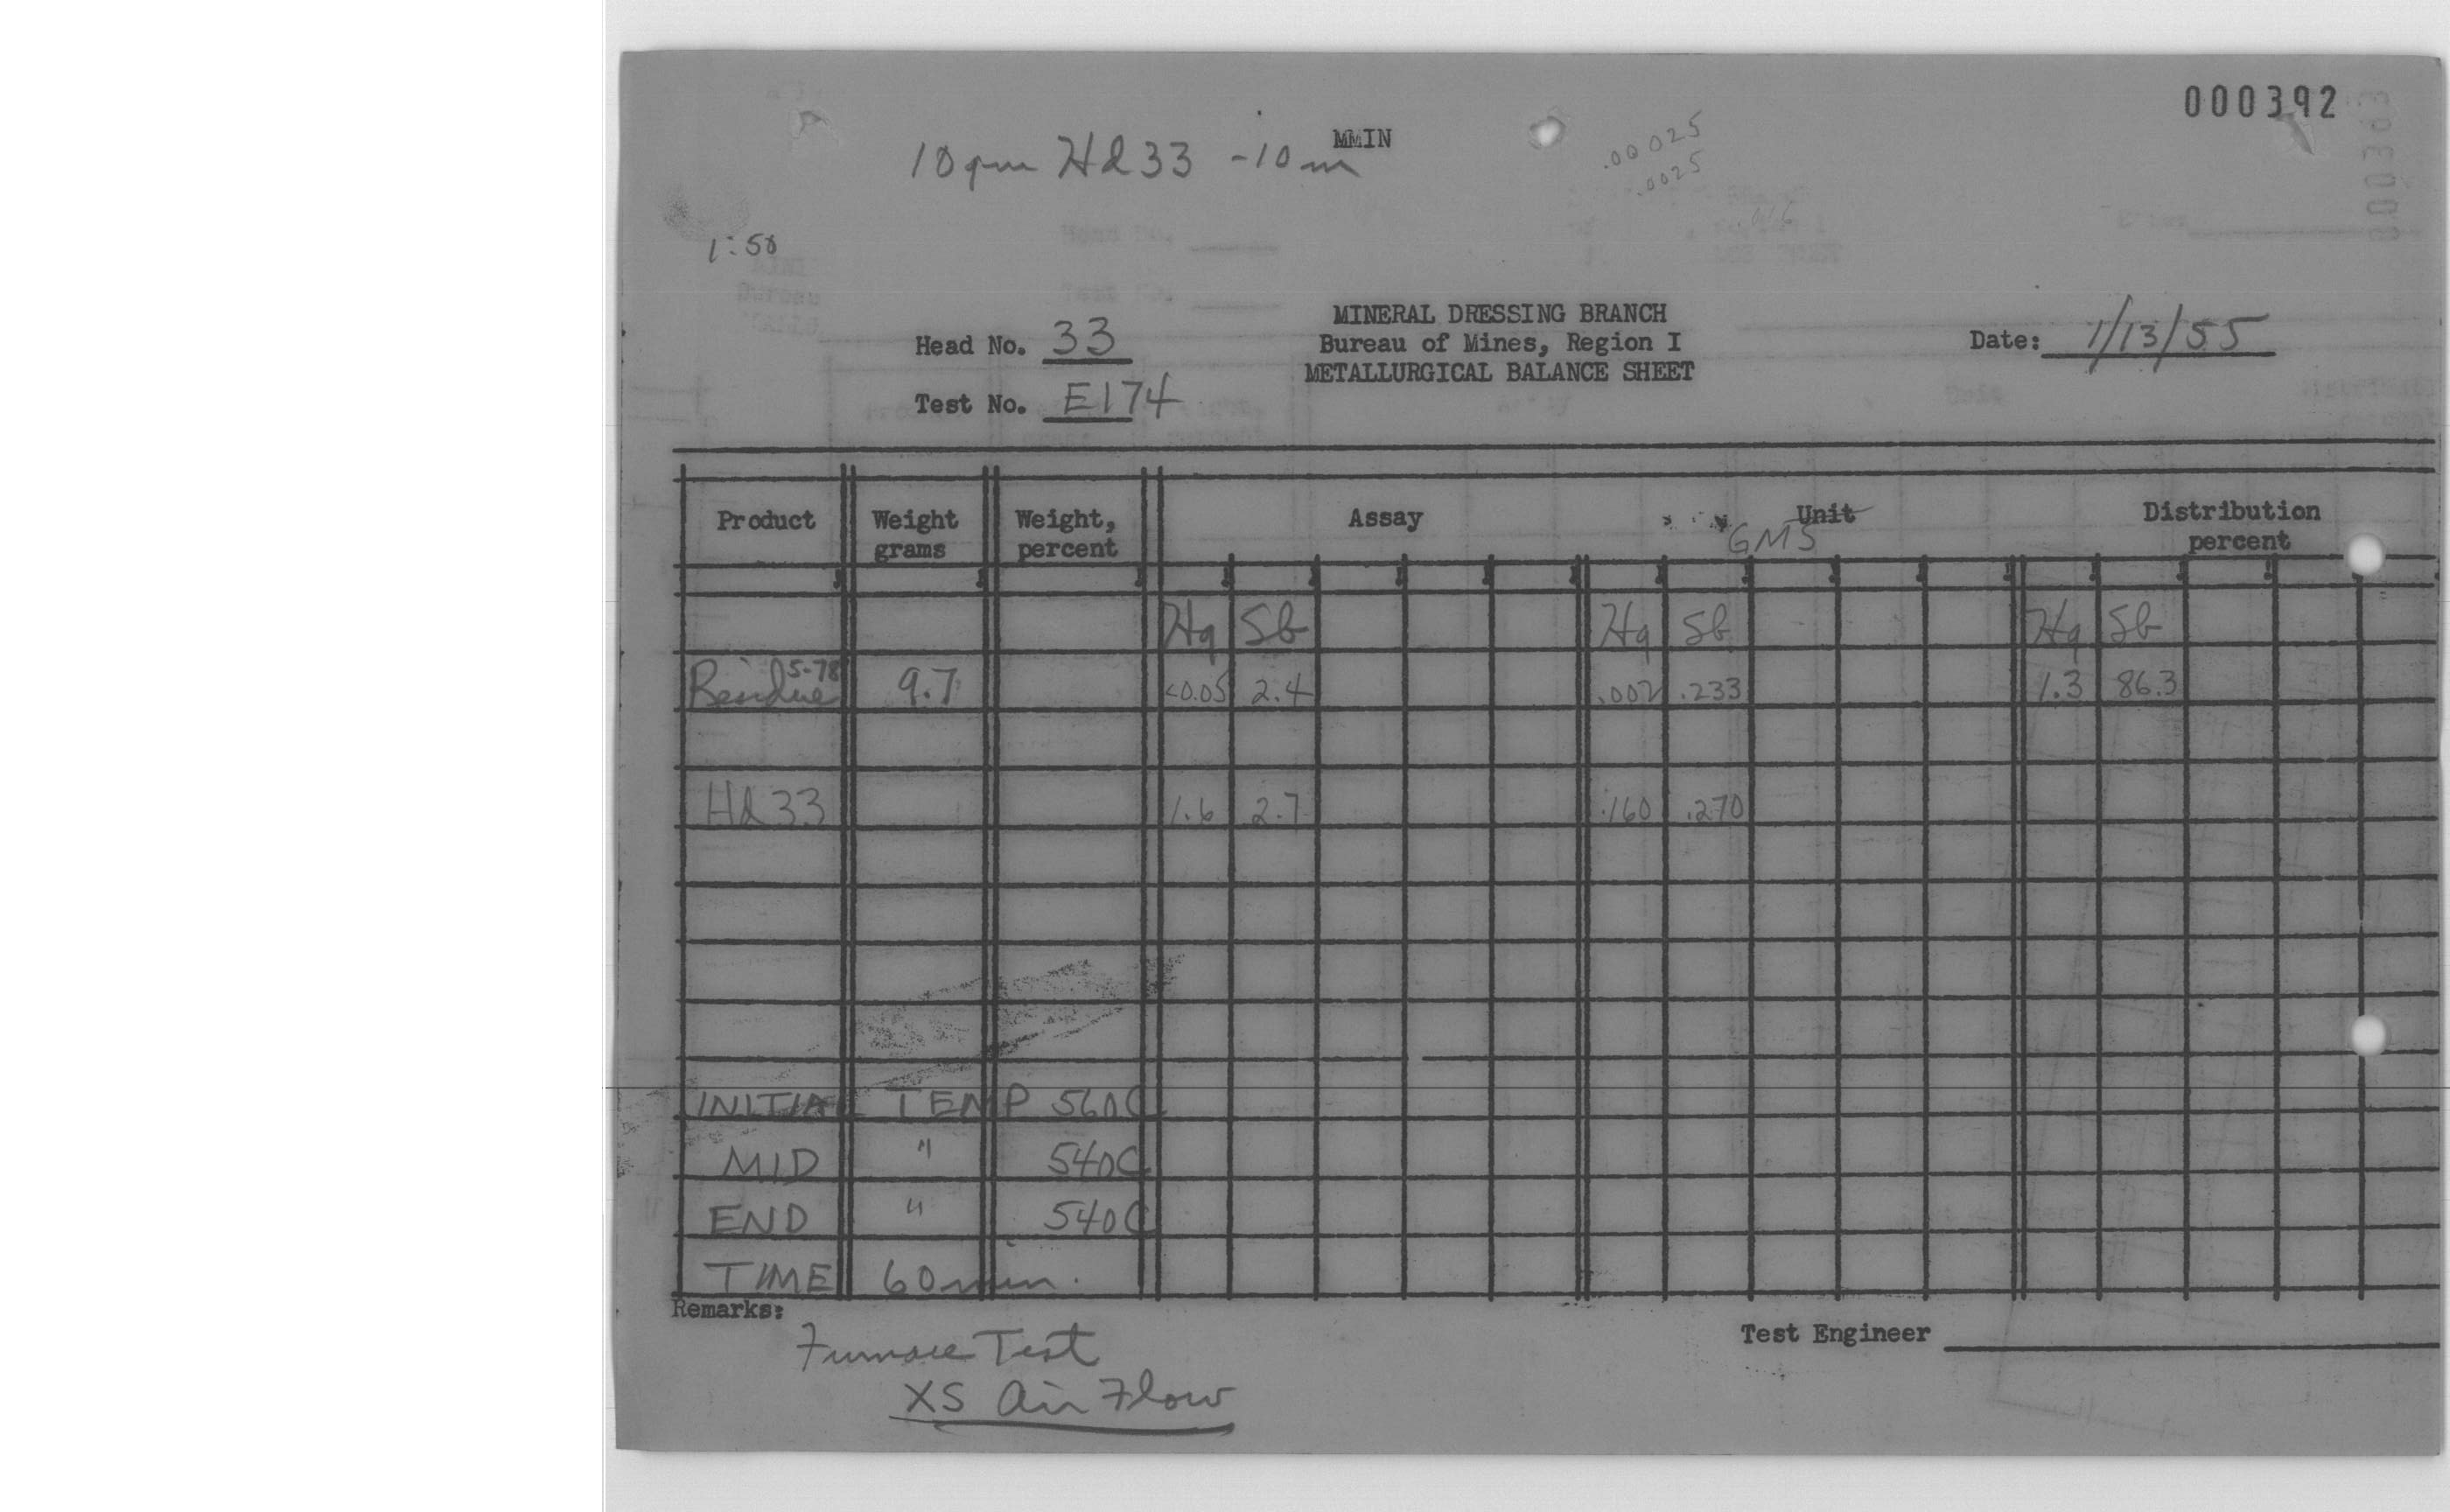 000392
MMIN
10 gm Hd 33 -10 m
.00025
.0025
1:50
MINERAL DRESSING BRANCH
Head No. 33
Bureau of Mines, Region I
Date: 1/13/55
METALLURGICAL BALANCE SHEET
Test No. E174
Product Weight grams Weight, percent Assay Unit GMS Distribution percent
Hg Sb Hg Sb Hg Sb
Residue 5-78 9.7 <0.05 2.4 .002 .233 1.3 86.3
Hd 33 1.6 2.7 .160 .270
INITIAL TEMP 560C
MID " 540C
END " 540C
TIME 60 min.
Remarks:
Furnace Test
Test Engineer
XS Air Flow